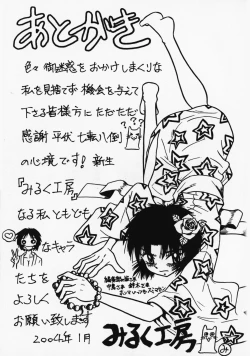 あとがき
色々御迷惑をおかけしまくりな
私を見捨てず機会を与えて
下さる皆様方にただただ
???
感謝 平伏 七転八倒
の心境です! 新生
『みるく工房』
なる私ともども
なキャラ
たちを
よろしく
お願い致します
2004年1月
みるく工房